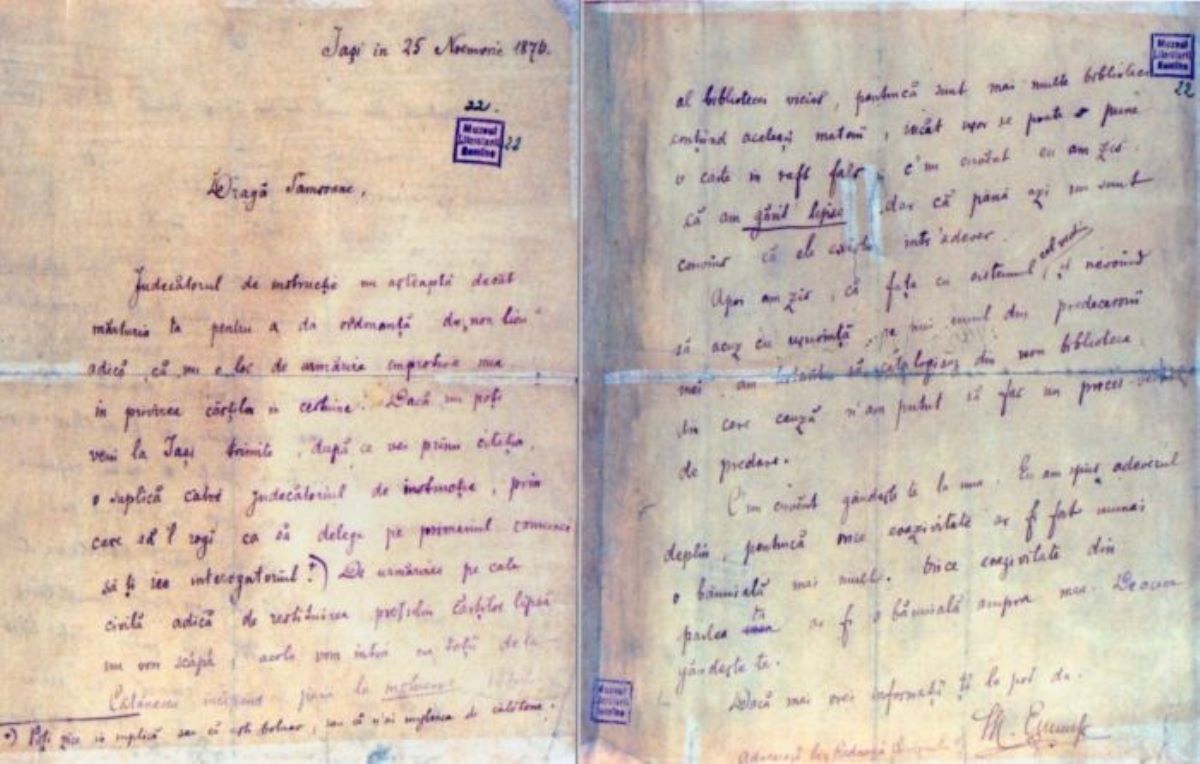 Iași în 25 Noemvrie 1876.
22.
Muzeul
Literaturii
Romîne
22
Dragă Samsoane,
Judecătorul de instrucție nu așteaptă decât
mărturia ta pentru a da ordonanță de „non lieu”
adică, că nu e loc de urmărire împrotiva mea
în privirea cărților în cestiune. Dacă nu poți
veni la Iași trimite, după ce vei primi citația,
o suplică catre judecătoriul de instrucție, prin
care să'l rogi ca să delege pe primariul comunei
să-ți iee interogatoriul.*) De urmărirea pe cale
civilă adică de restituirea prețului cărților lipsă
nu vom scăpa, acolo vom intra cu toții de la
încependo până la
*) Poți zice în suplică sau că ești bolnav, sau că n'ai mijloace de călătorie.
Muzeul
Literaturii
Romîne
22
al bibliotecei vecine, pentrucă sunt mai multe biblioteci
conțiind aceleași materii, încât ușor se poate pune
o carte în raft fals, c'un cuvânt eu am zis
că am găsit lipse dar că până azi nu sunt
convins că ele există într'adever.
Apoi am zis, că față cu sistemul, și nevoind
să acuz cu ușurință, pe nici unul din predecesorii
mei am să cataloghez din nou biblioteca
din care cauză n'am putut să fac un proces-verbal
de predare.
C'un cuvânt gândește-te la mine. Eu am spus adeverul
deplin, pentrucă orice esagivitate ar fi fost numai
o bănuială mai mult. Orice esagivitate din
partea ta ar fi o bănuială asupra mea. De aceea
gândește-te.
Dacă mai vrei informații ți le pot da.
M. Eminescu
Muzeul
Literaturii
Romîne